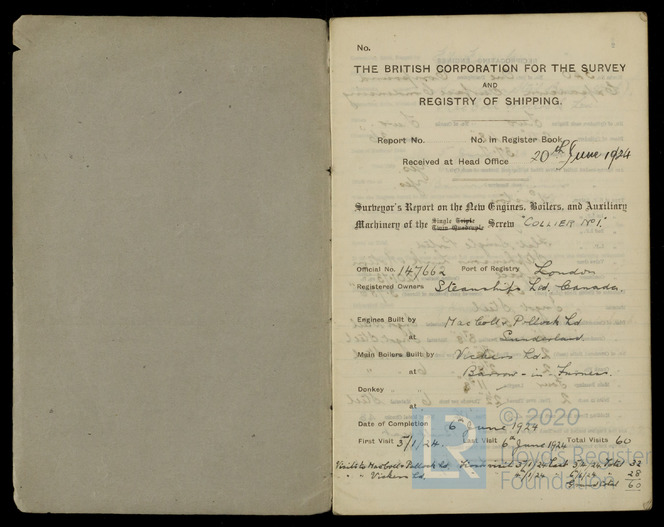 No.
THE BRITISH CORPORATION FOR THE SURVEY
AND
REGISTRY OF SHIPPING.
Report No. No. in Register Book
Received at Head Office 20th June 1924
Surveyor's Report on the New Engines, Boilers, and Auxiliary
Single Triple
Machinery of the Twin Quadruple Screw "COLLIER No 1."
Official No. 147662 Port of Registry London
Registered Owners Steamships Ltd. Canada.
Engines Built by MacColl & Pollock Ld
at Sunderland
Main Boilers Built by Vickers Ld.
at Barrow-in-Furness.
Donkey "
at
Date of Completion 6th June 1924
First Visit 3/1/24. Last Visit 6th June 1924 Total Visits 60
Visits to MacColl & Pollock Ld. First visit 3/1/24 Last Total 32
" " Vickers Ld. 28
60
LR
© 2020
Lloyd's Register
Foundation